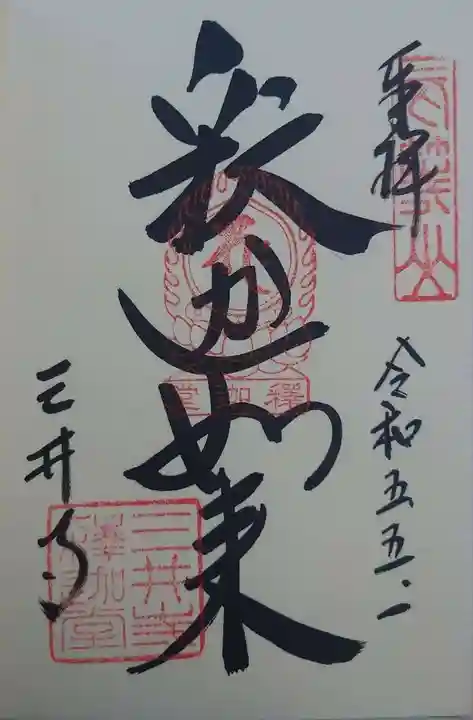 奉拝
令和五、五、一
釈迦如来
釋迦堂
三井寺
三井寺
釋迦堂